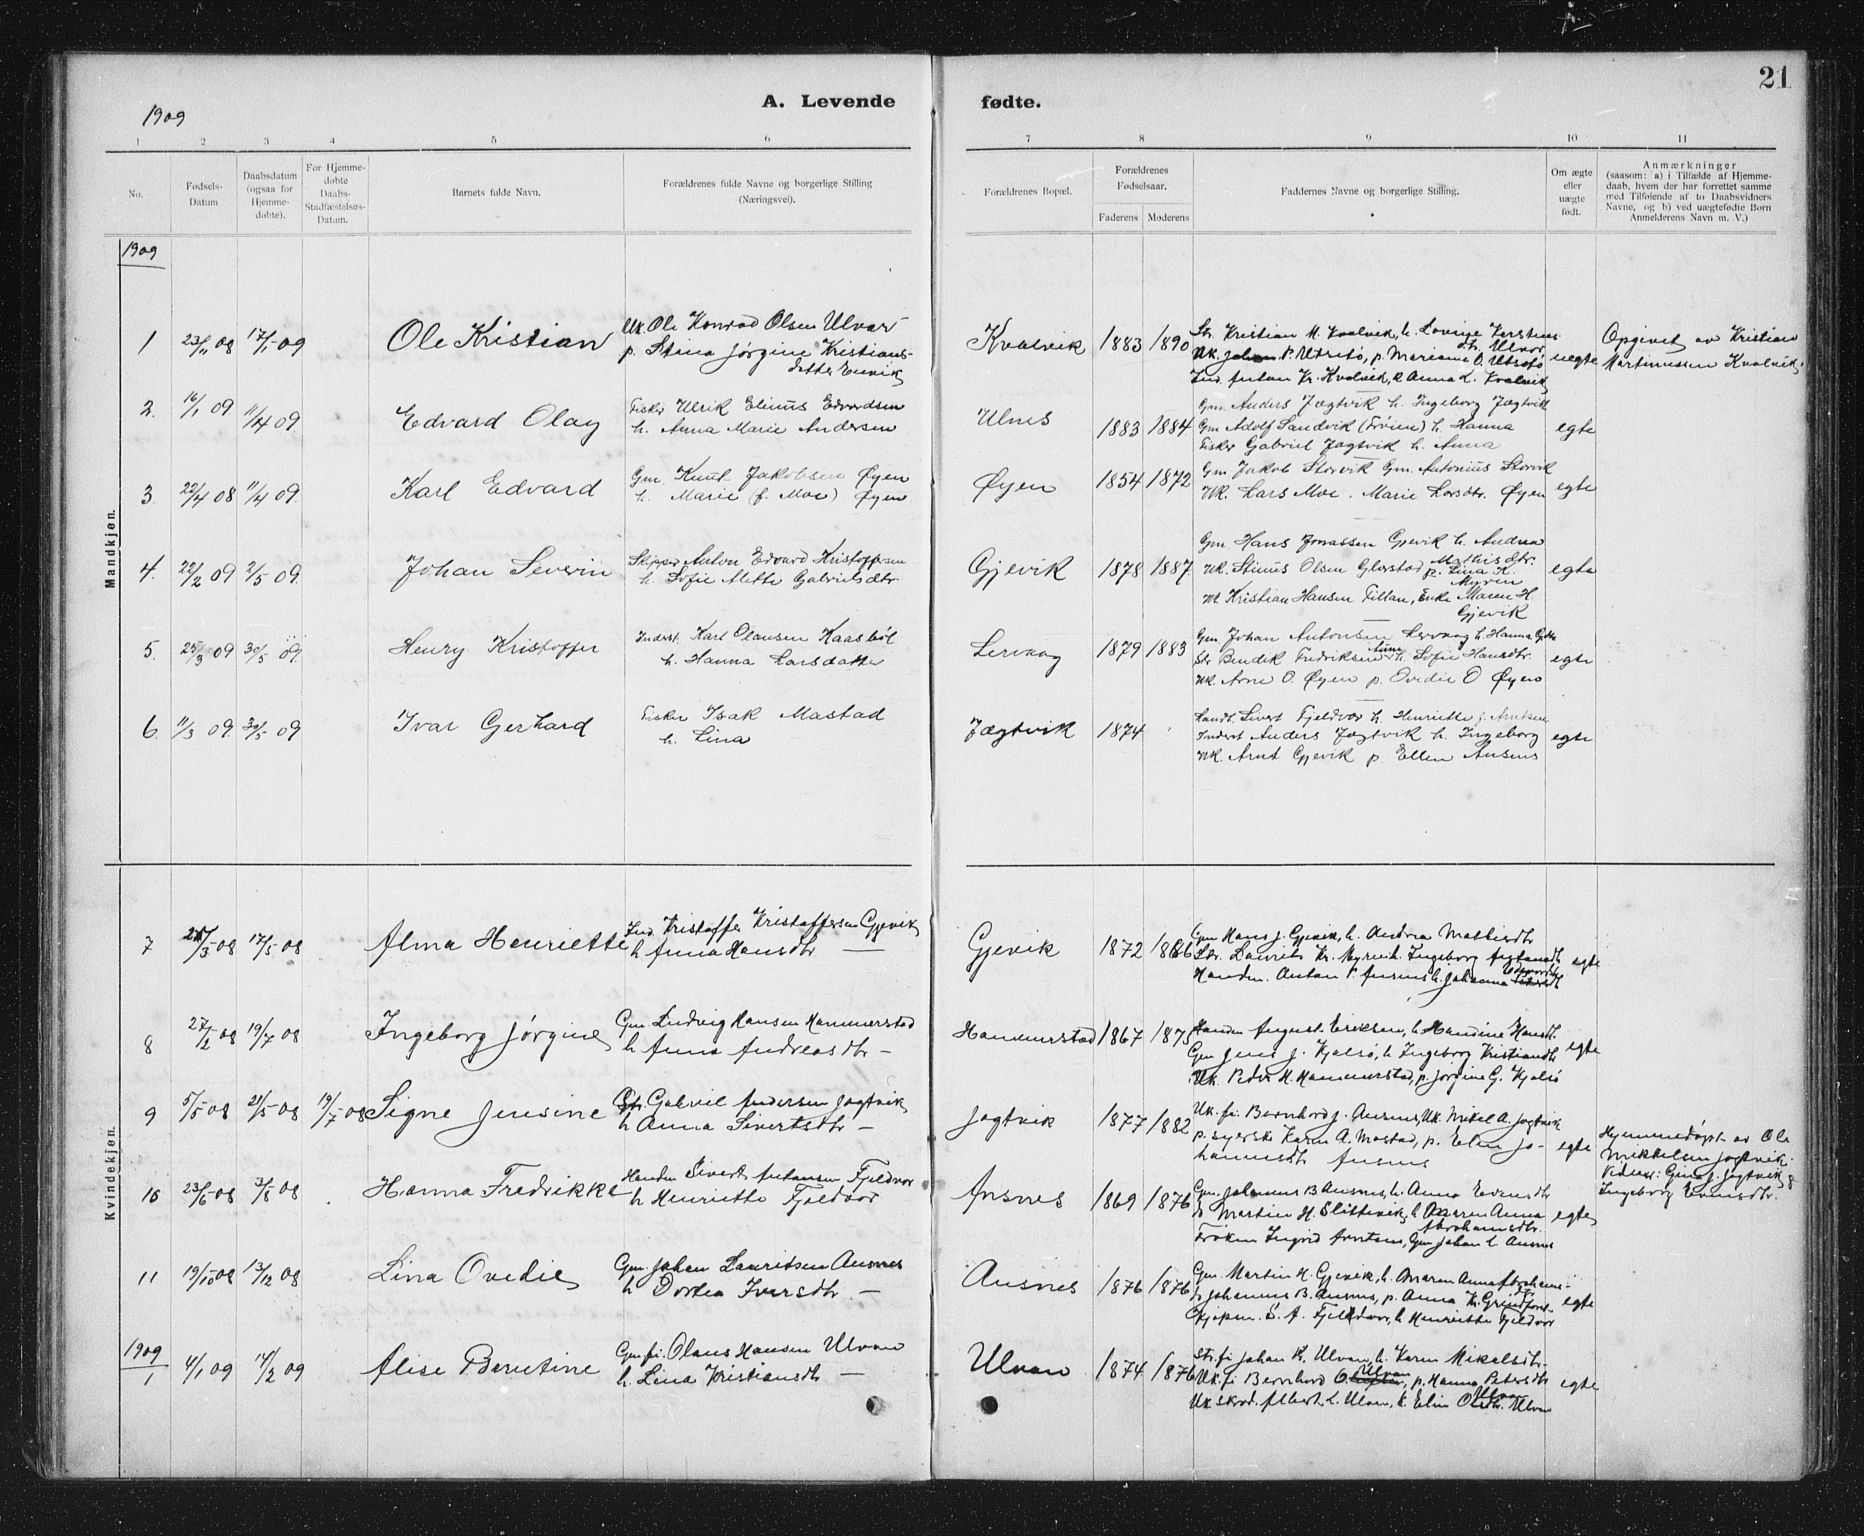 21
1909
A. Levende fødte.
1 2 3 4 5 6 7 8 9 10 11
No.
Fødsels-
Datum
Daabsdatum
(ogsaa for
Hjemme-
døbte).
For Hjemme-
døbte
Daabs-
Stadfæstelses-
Datum.
Barnets fulde Navn.
Forældrenes fulde Navne og borgerlige Stilling
(Næringsvei).
Forældrenes Bopæl.
Forældrenes
Fødselsaar.
Faderens Moderens
Faddernes Navne og borgerlige Stilling.
Om ægte
eller
uægte
født.
Anmærkninger
(saasom: a) i Tilfælde af Hjemme-
daab, hvem der har forrettet samme
med Tilføiende af to Daabsvidners
Navne, og b) ved uægtefødte Børn
Anmelderens Navn m. V.)
Mandkjøn.
1909
1 23/11 08 17/1-09 Ole Kristian
Uk. Ole Konrad Olsen Ulvan
p. Stina Jørgine Kristians-
datter
Kvalvik 1883 1890
Str. Kristian M. Kvalvik, h. Lovise Karstens
dtr. Ulvan
Uk. Johan P. Utsetø, p. Mariane O. Utsetø
Ind. Anton Kr. Kvalvik, Anna L. Kvalvik
uegte
Opgivet av Kristian
Martinussen Kvalvik.
2. 16/1 09 11/4 09. Edvard Olay
Fisker Ulrik Elinus Edvardsen
h. Anna Marie Andersen
Ulnes 1883 1884
Gm. Anders Jægtvik h. Ingeborg Jægtvik
Gm Adolf Sandvik (Frøien) h. Hanna
Fisker Gabriel Jægtvik h. Anna
egte
3. 22/4 08 11/4 09. Karl Edvard
Gm. Knut Jakobsen Øyen
h. Marie (f. Moe) Øyen
Øyen 1854 1872
Gm Jakob Storvik Gm. Antonius Storvik
Uk. Lars Moe. Marie Larsdtr. Øyen
egte
4. 22/2 09 2/5 09. Johan Severin
Skipper Anton Edvard Kristoffersen
h. Sofie Mette Gabrielsdtr
Gjevik 1878 1887.
Gm Hans Jonassen Gjevik h. Andrea
Mathisdtr.
Uk. Stinus Olsen Glørstad p. Lina K.
Myren
Uk. Kristian Hansen Fillan, Enke Maren H.
Gjevik
egte
5. 25/3 09 30/5 09. Henry Kristoffer
Inderst. Karl Olausen Kaasbøl
h. Hanna Larsdatter
Lervaag 1879 1883
Gm Johan Antonsen Lervaag h. Hanna
Str Bendik Fredriksen Aune h. Sofie Hansdtr.
Uk. Arne O. Øyen p. Ovedie O Øyen
egte
6. 11/3 09. 30/5-09 Ivar Gerhard
Fisker Isak Mastad
h. Lina
Jægtvik 1874
Landh. Sivert Fjeldvær h. Henriette f. Arntsen
Inderst Anders Jægtvik h. Ingeborg
Uk. Arnt Gjevik p. Ellen Ansnes
egte
Kvindekjøn.
7 /3-08 17/5-08 Alma Henriette
Ind. Kristoffer Kristoffersen Gjevik
h Anna Hansdtr —
Gjevik 1872 1886
Gm Hans J. Gjevik, h. Andrea Mathisdtr
Str. Laurits Kr. Myren h. Ingeborg
Handm. Anton P. Ansnes h. Johanna
egte
8 27/2-08 19/7-08 Ingeborg Jørgine
Gm Ludvig Hansen Hammerstad
h Anna Andreasdtr —
Hammerstad 1867 1875
Handm August Eriksen, h Handine Hansdtr.
Gm Jens J. Kjølsø, h Ingeborg Kristiandtr
Uk. Peder H. Hammerstad, p Jørgine G. Kjølsø
egte
9 5/5-08 21/5-08 19/7-08 Signe Jensine
Str. Gabriel Andersen Jøgtvik
h Anna Sivertsdtr —
Jøgtvik 1877 1882
Uk. fi. Bernhard J. Ansnes, Uk. Mikel A. Jøgtvik
p. syerske Karen A. Mastad, p. Elen Jo-
hannesdtr Ansnes
egte
Hjemmedøpt av Ole
Mikkelsen Jøgtvik.
Vidner: Gina J. Jøgtvik &
Ingeborg Evensdtr.
10 23/6-08 2/8-08 Hanna Fredrikke
Handm Sivert Antonsen Fjeldvær
h Henriette Fjeldvær
Ansnes 1869 1876
Gm. Johannes B Ansnes, h. Anna Evensdtr
Martin H. Slittevik, h Maren Anna
Abrahamsdtr.
Frøken Ingrid Arntsen, Gm Johan L. Ansnes
egte
11 19/10-08 13/12 08 Lina Ovedie
Gm. Johan Lauritsen Ansnes
h Dortea Iversdtr. —
Ansnes 1876 1876
Gm. Martin H. Gjevik, h. Maren Anna Abrahams-
dtr
Johannes B. Ansnes, p. Anna Kr. Grindfors-
Kjøpm. S. A. Fjeldvær, h Henriette Fjeldvær
egte
1909
1 4/1 09 14/2 09 Alise Berntine
Gm fi. Olaus Hansen Ulvan
h. Lina Kristiansdtr —
Ulvan 1874 1876
Str. fi Johan K. Ulvan, h. Karen Mikalsdtr.
Uk. fi Bernhard O. Ulvan, p. Hanna Petersdtr
Ulvan
Uk skræd. Albert L. Ulvan, h. Elin Olsdtr. Ulvan
egte